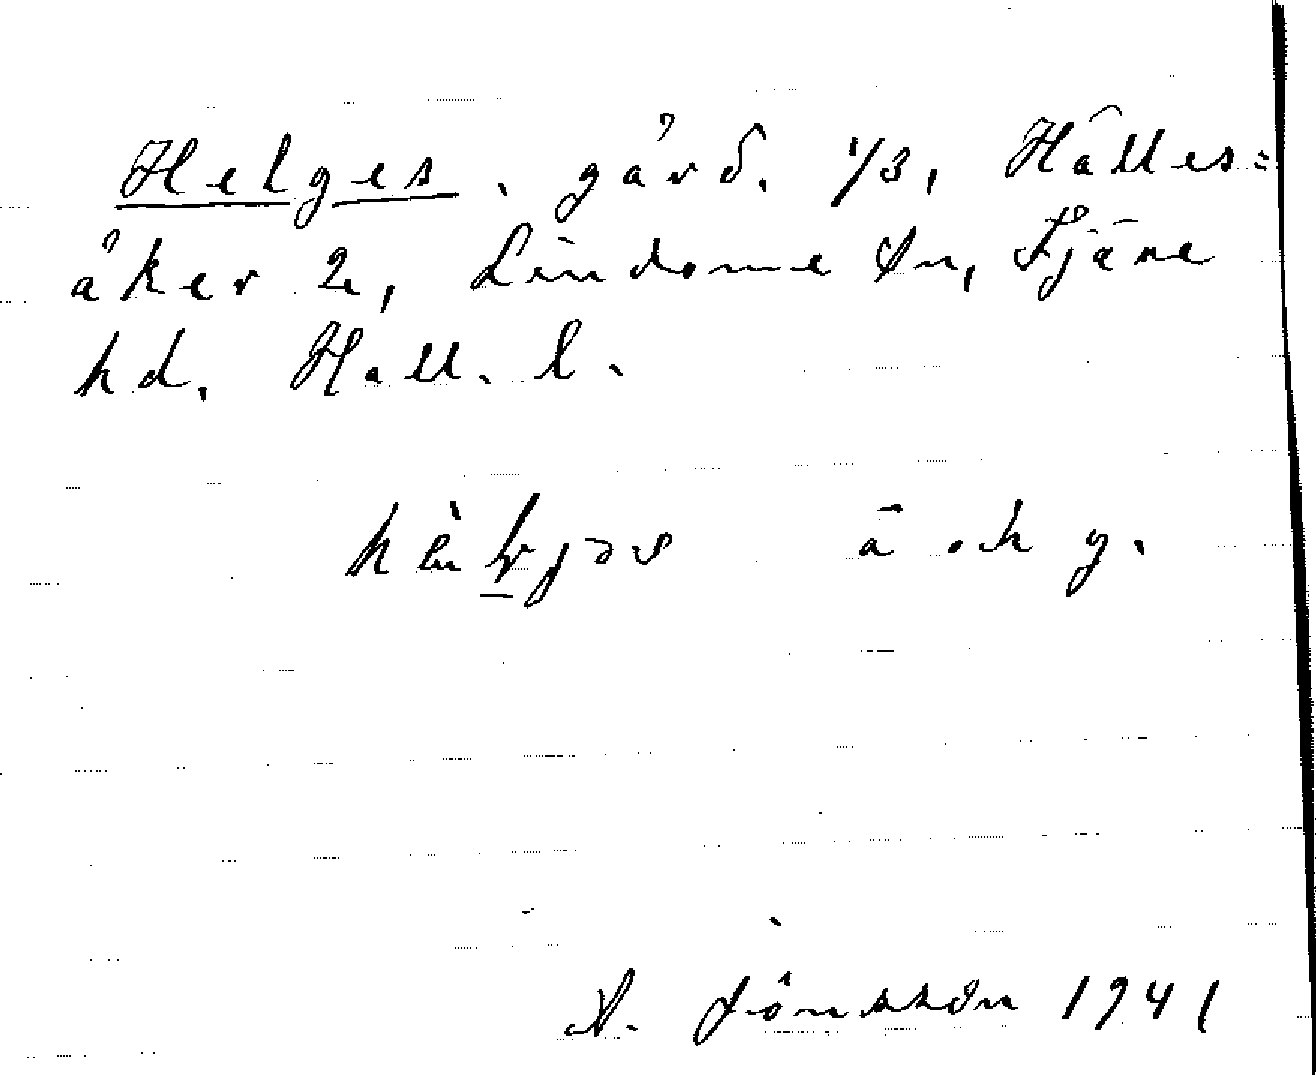 Helges. gård. 1/3, Hälles=
åker 2, Lindome sn, Fjäre
hd. Hall. l.
ä och y.
A. Jönsson 1941